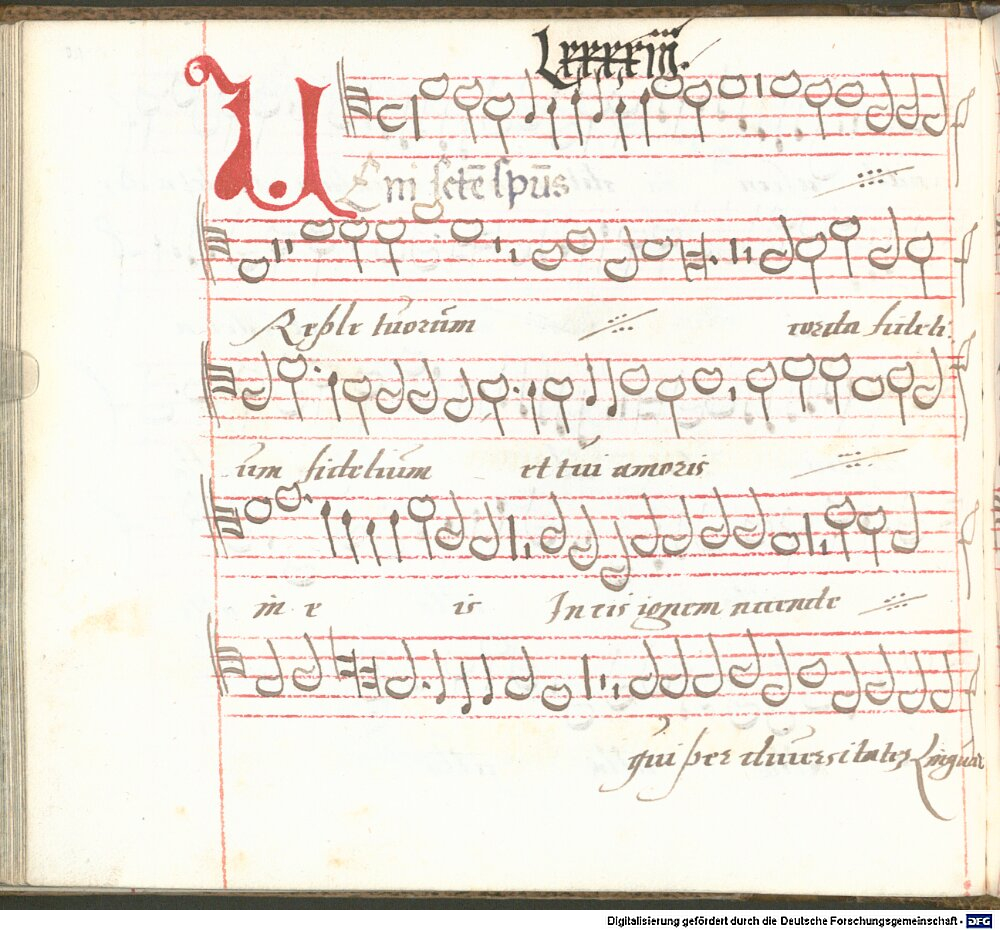 Lxxxxiiij.
VEni scte͞ spūs
Reple tuorūm corda fideli
um fidelium et tui amoris
in e is In eis ignem accende
qui per diuersitatez Linguar
Digitalisierung gefördert durch die Deutsche Forschungsgemeinschaft - DFG